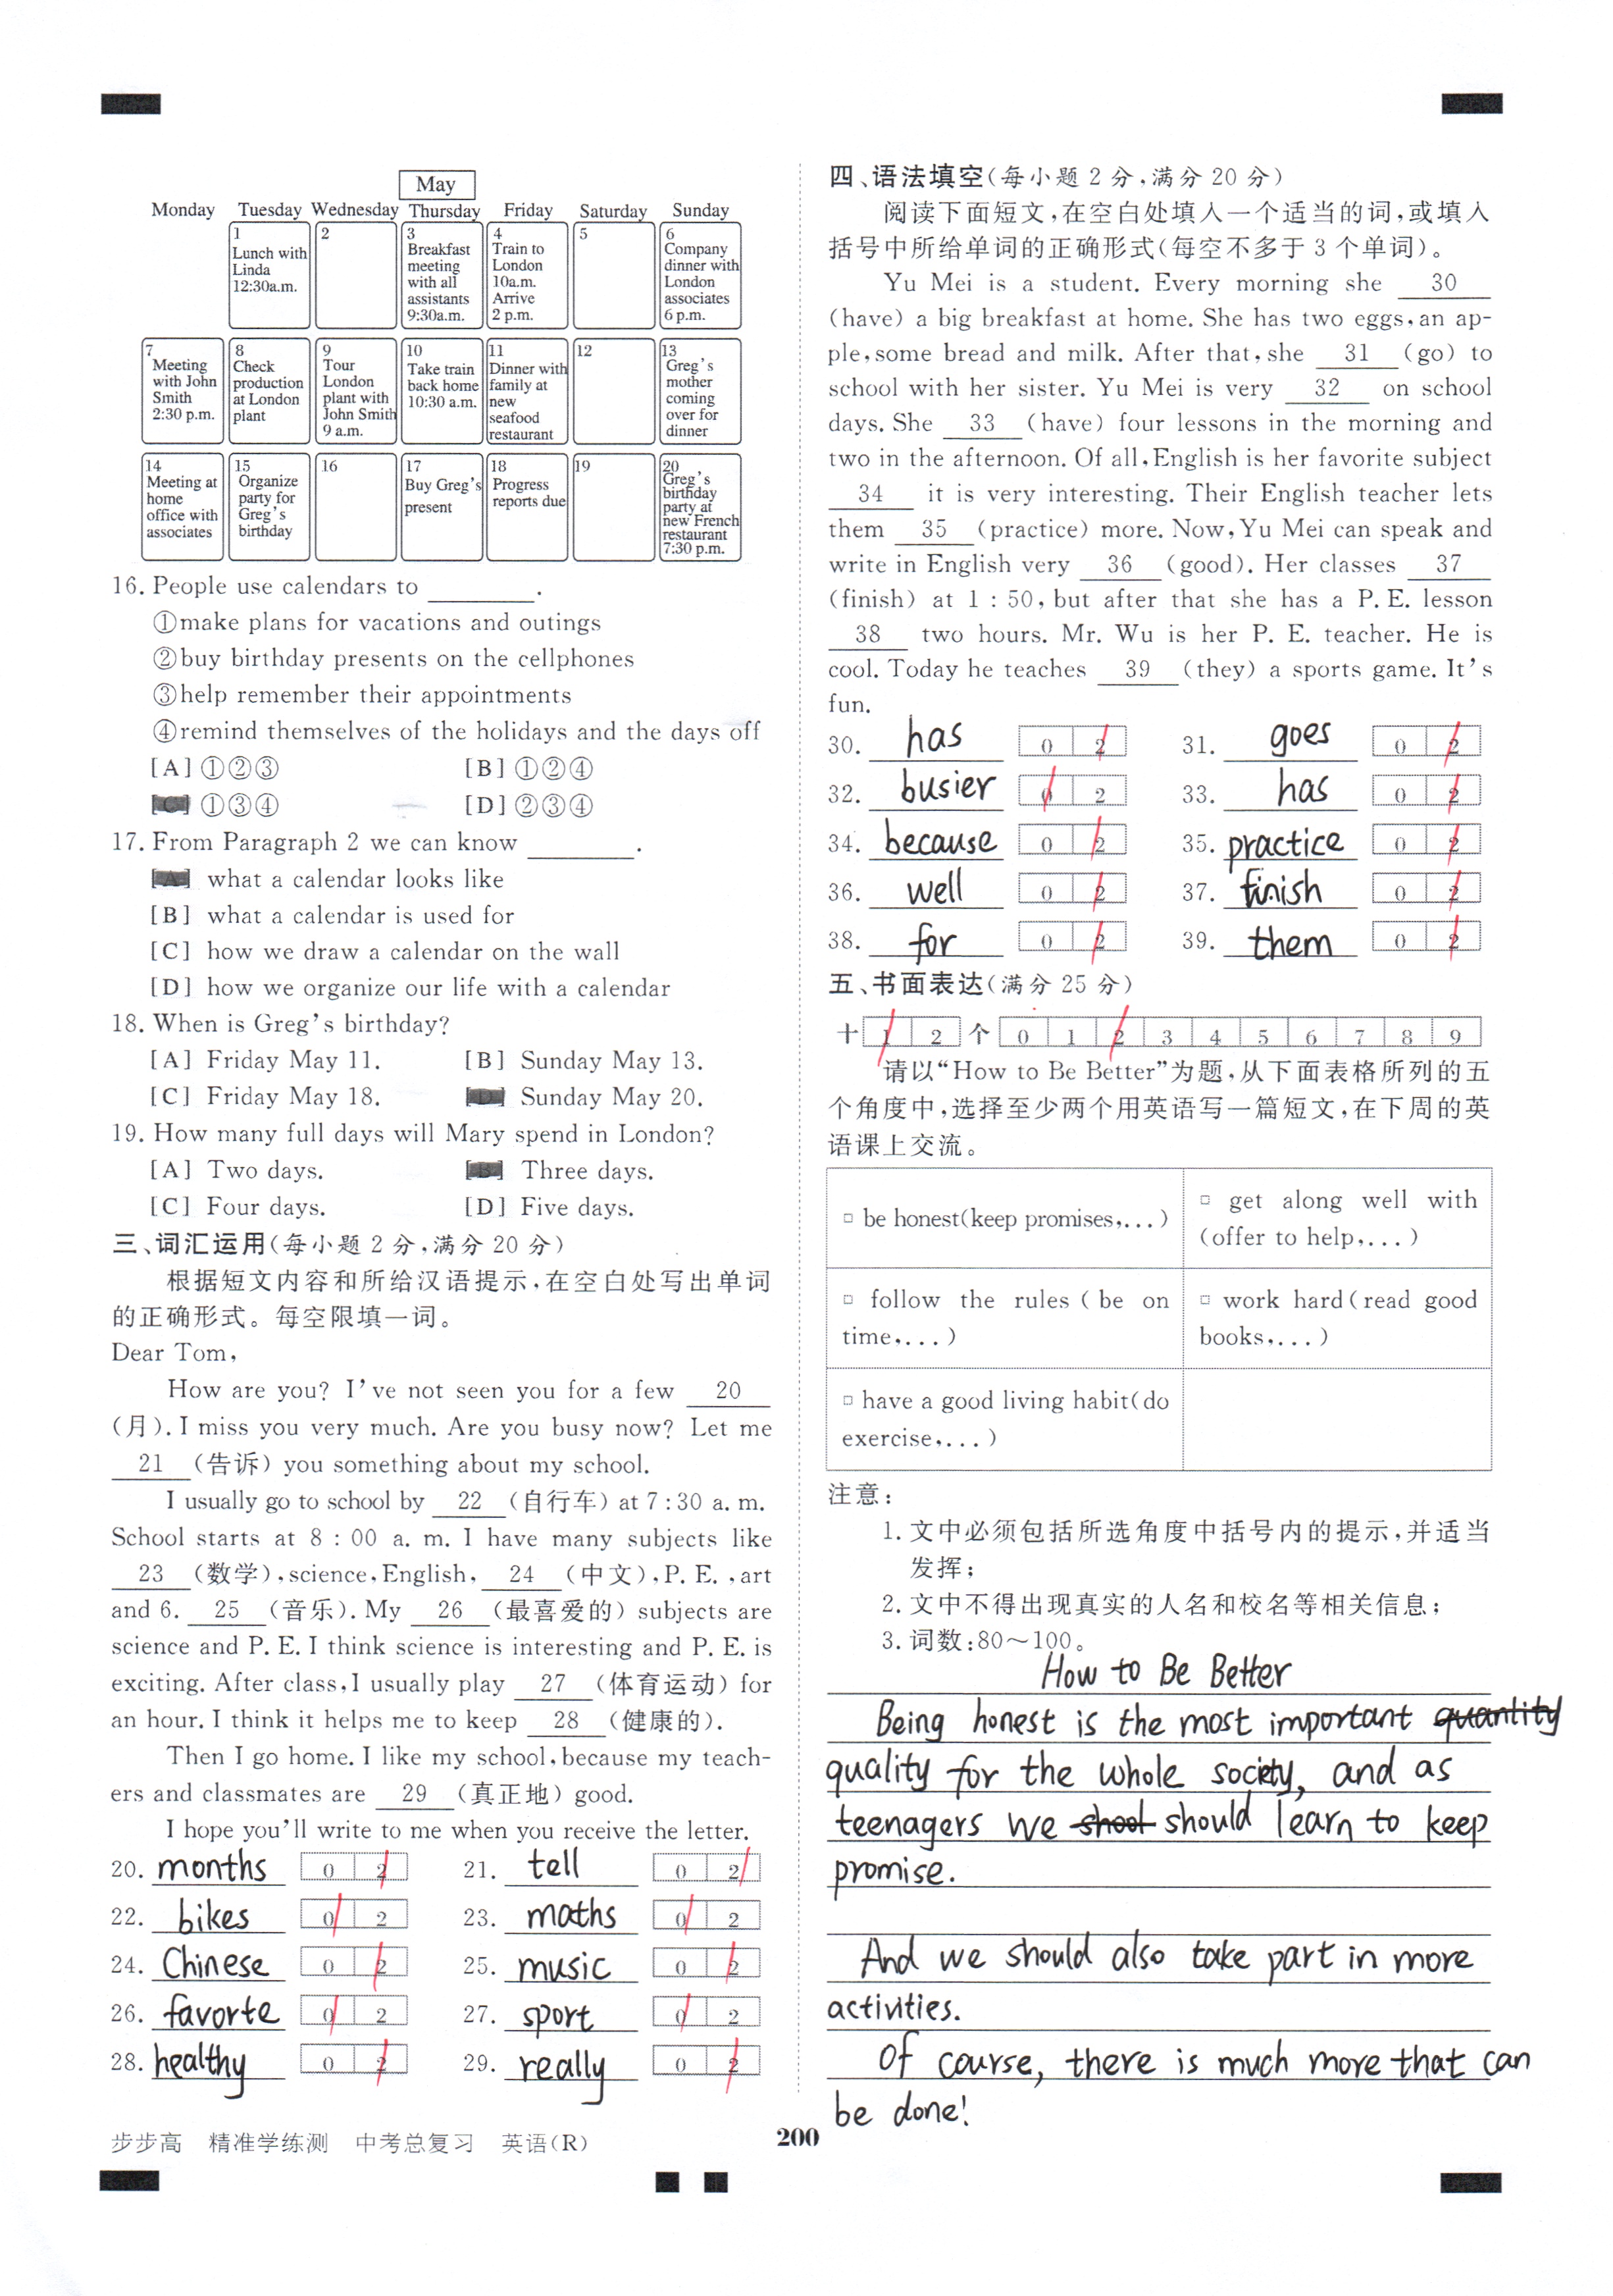 May
Monday Tuesday Wednesday Thursday Friday Saturday Sunday
1 Lunch with Linda 12:30a.m.
2
3 Breakfast meeting with all assistants 9:30a.m.
4 Train to London 10a.m. Arrive 2 p.m.
5
6 Company dinner with London associates 6 p.m.
7 Meeting with John Smith 2:30 p.m.
8 Check production at London plant
9 Tour London plant with John Smith 9 a.m.
10 Take train back home 10:30 a.m.
11 Dinner with family at new seafood restaurant
12
13 Greg's mother coming over for dinner
14 Meeting at home office with associates
15 Organize party for Greg's birthday
16
17 Buy Greg's present
18 Progress reports due
19
20 Greg's birthday party at new French restaurant 7:30 p.m.
16. People use calendars to ________.
①make plans for vacations and outings
②buy birthday presents on the cellphones
③help remember their appointments
④remind themselves of the holidays and the days off
[A] ①②③ [B] ①②④
[C] ①③④ [D] ②③④
17. From Paragraph 2 we can know ________.
[A] what a calendar looks like
[B] what a calendar is used for
[C] how we draw a calendar on the wall
[D] how we organize our life with a calendar
18. When is Greg's birthday?
[A] Friday May 11. [B] Sunday May 13.
[C] Friday May 18. [D] Sunday May 20.
19. How many full days will Mary spend in London?
[A] Two days. [B] Three days.
[C] Four days. [D] Five days.
三、词汇运用(每小题 2 分,满分 20 分)
根据短文内容和所给汉语提示,在空白处写出单词
的正确形式。每空限填一词。
Dear Tom,
How are you? I've not seen you for a few 20
(月). I miss you very much. Are you busy now? Let me
21 (告诉) you something about my school.
I usually go to school by 22 (自行车) at 7:30 a. m.
School starts at 8 : 00 a. m. I have many subjects like
23 (数学),science,English, 24 (中文),P. E. ,art
and 6. 25 (音乐). My 26 (最喜爱的) subjects are
science and P. E. I think science is interesting and P. E. is
exciting. After class,I usually play 27 (体育运动) for
an hour. I think it helps me to keep 28 (健康的).
Then I go home. I like my school,because my teach-
ers and classmates are 29 (真正地) good.
I hope you'll write to me when you receive the letter.
20. months 0 2 21. tell 0 2
22. bikes 0 2 23. maths 0 2
24. Chinese 0 2 25. music 0 2
26. favorte 0 2 27. sport 0 2
28. healthy 0 2 29. really 0 2
四、语法填空(每小题 2 分,满分 20 分)
阅读下面短文,在空白处填入一个适当的词,或填入
括号中所给单词的正确形式(每空不多于 3 个单词)。
Yu Mei is a student. Every morning she 30
(have) a big breakfast at home. She has two eggs,an ap-
ple,some bread and milk. After that,she 31 (go) to
school with her sister. Yu Mei is very 32 on school
days. She 33 (have) four lessons in the morning and
two in the afternoon. Of all,English is her favorite subject
34 it is very interesting. Their English teacher lets
them 35 (practice) more. Now,Yu Mei can speak and
write in English very 36 (good). Her classes 37
(finish) at 1 : 50,but after that she has a P. E. lesson
38 two hours. Mr. Wu is her P. E. teacher. He is
cool. Today he teaches 39 (they) a sports game. It's
fun.
30. has 0 2 31. goes 0 2
32. busier 0 2 33. has 0 2
34. because 0 2 35. practice 0 2
36. well 0 2 37. finish 0 2
38. for 0 2 39. them 0 2
五、书面表达(满分 25 分)
十 1 2 个 0 1 2 3 4 5 6 7 8 9
请以“How to Be Better”为题,从下面表格所列的五
个角度中,选择至少两个用英语写一篇短文,在下周的英
语课上交流。
□ be honest(keep promises,...)
□ get along well with
(offer to help,...)
□ follow the rules (be on
time,...)
□ work hard(read good
books,...)
□ have a good living habit(do
exercise,...)
注意:
1. 文中必须包括所选角度中括号内的提示,并适当
发挥;
2. 文中不得出现真实的人名和校名等相关信息;
3. 词数:80～100。
How to Be Better
Being honest is the most important quantity
quality for the whole society, and as
teenagers we shool should learn to keep
promise.
And we should also take part in more
activities.
Of course, there is much more that can
be done!
步步高 精准学练测 中考总复习 英语(R)
200